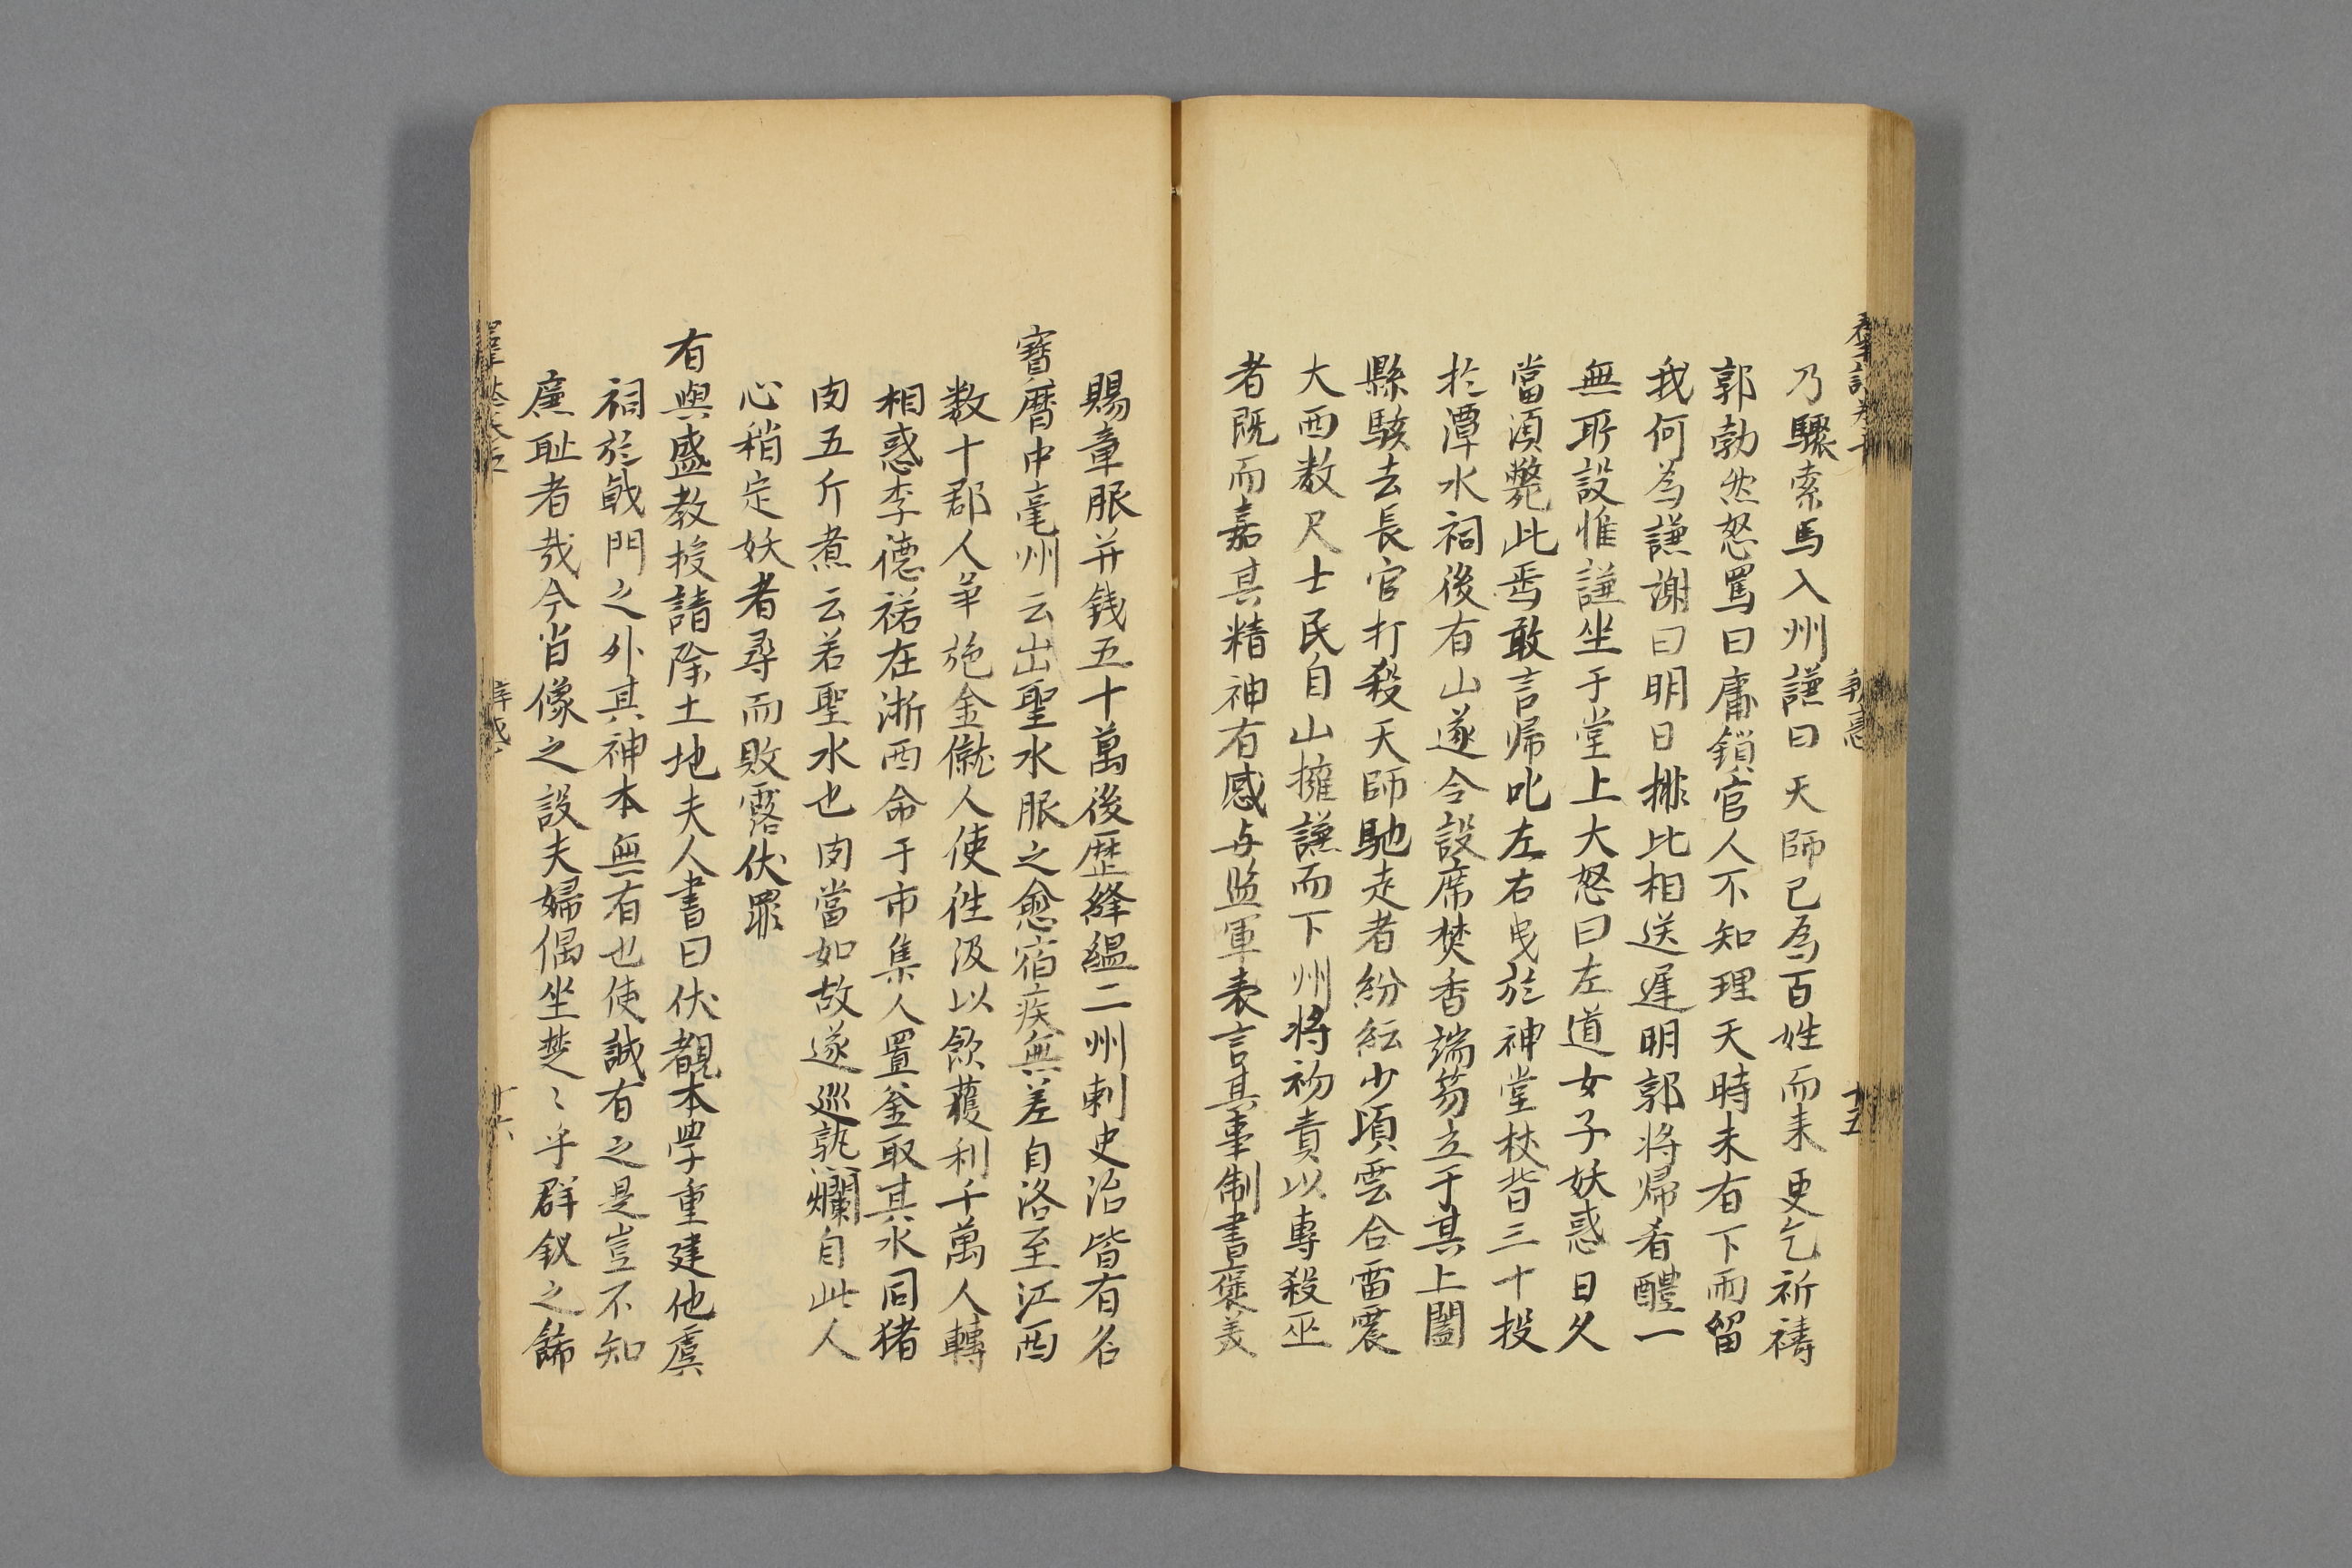 乃驟索馬入州謙曰天師已為百姓而来更乞祈禱
郭勃然怒罵曰庸鎖官人不知理天時未有下雨留
我何為謙謝曰明日排比相送遲明郭将帰肴醴一
無所設惟謙坐于堂上大怒曰左道女子妖惑日久
當須斃此焉敢言帰叱左右曳於神堂杖背三十投
於潭水祠後有山遂令設席焚香端笏立于其上闔
縣駭去長官打殺天師馳走者紛紜少頃雲合雷震
大雨数尺士民自山擁謙而下州将初責以専殺巫
者既而嘉其精神有感与監軍表言其事制書褒美
賜章服并銭五十萬後歴絳縕二州刺史治皆有名
寳暦中亳州云出聖水服之愈宿疾無差自洛至江西
数十郡人争施金僦人使徃汲以飲獲利千萬人轉
相惑李德裕在浙西命于市集人置釜取其水同猪
肉五斤煮云若聖水也肉當如故遂巡熟爛自此人
心稍定妖者尋而敗露伏罪
有與盛教授請除土地夫人書曰伏覩本学重建他虞
祠於戟門之外其神本無有也使誠有之是豈不知
廉耻者哉今肖像之設夫婦偶坐楚〻乎群釵之飾